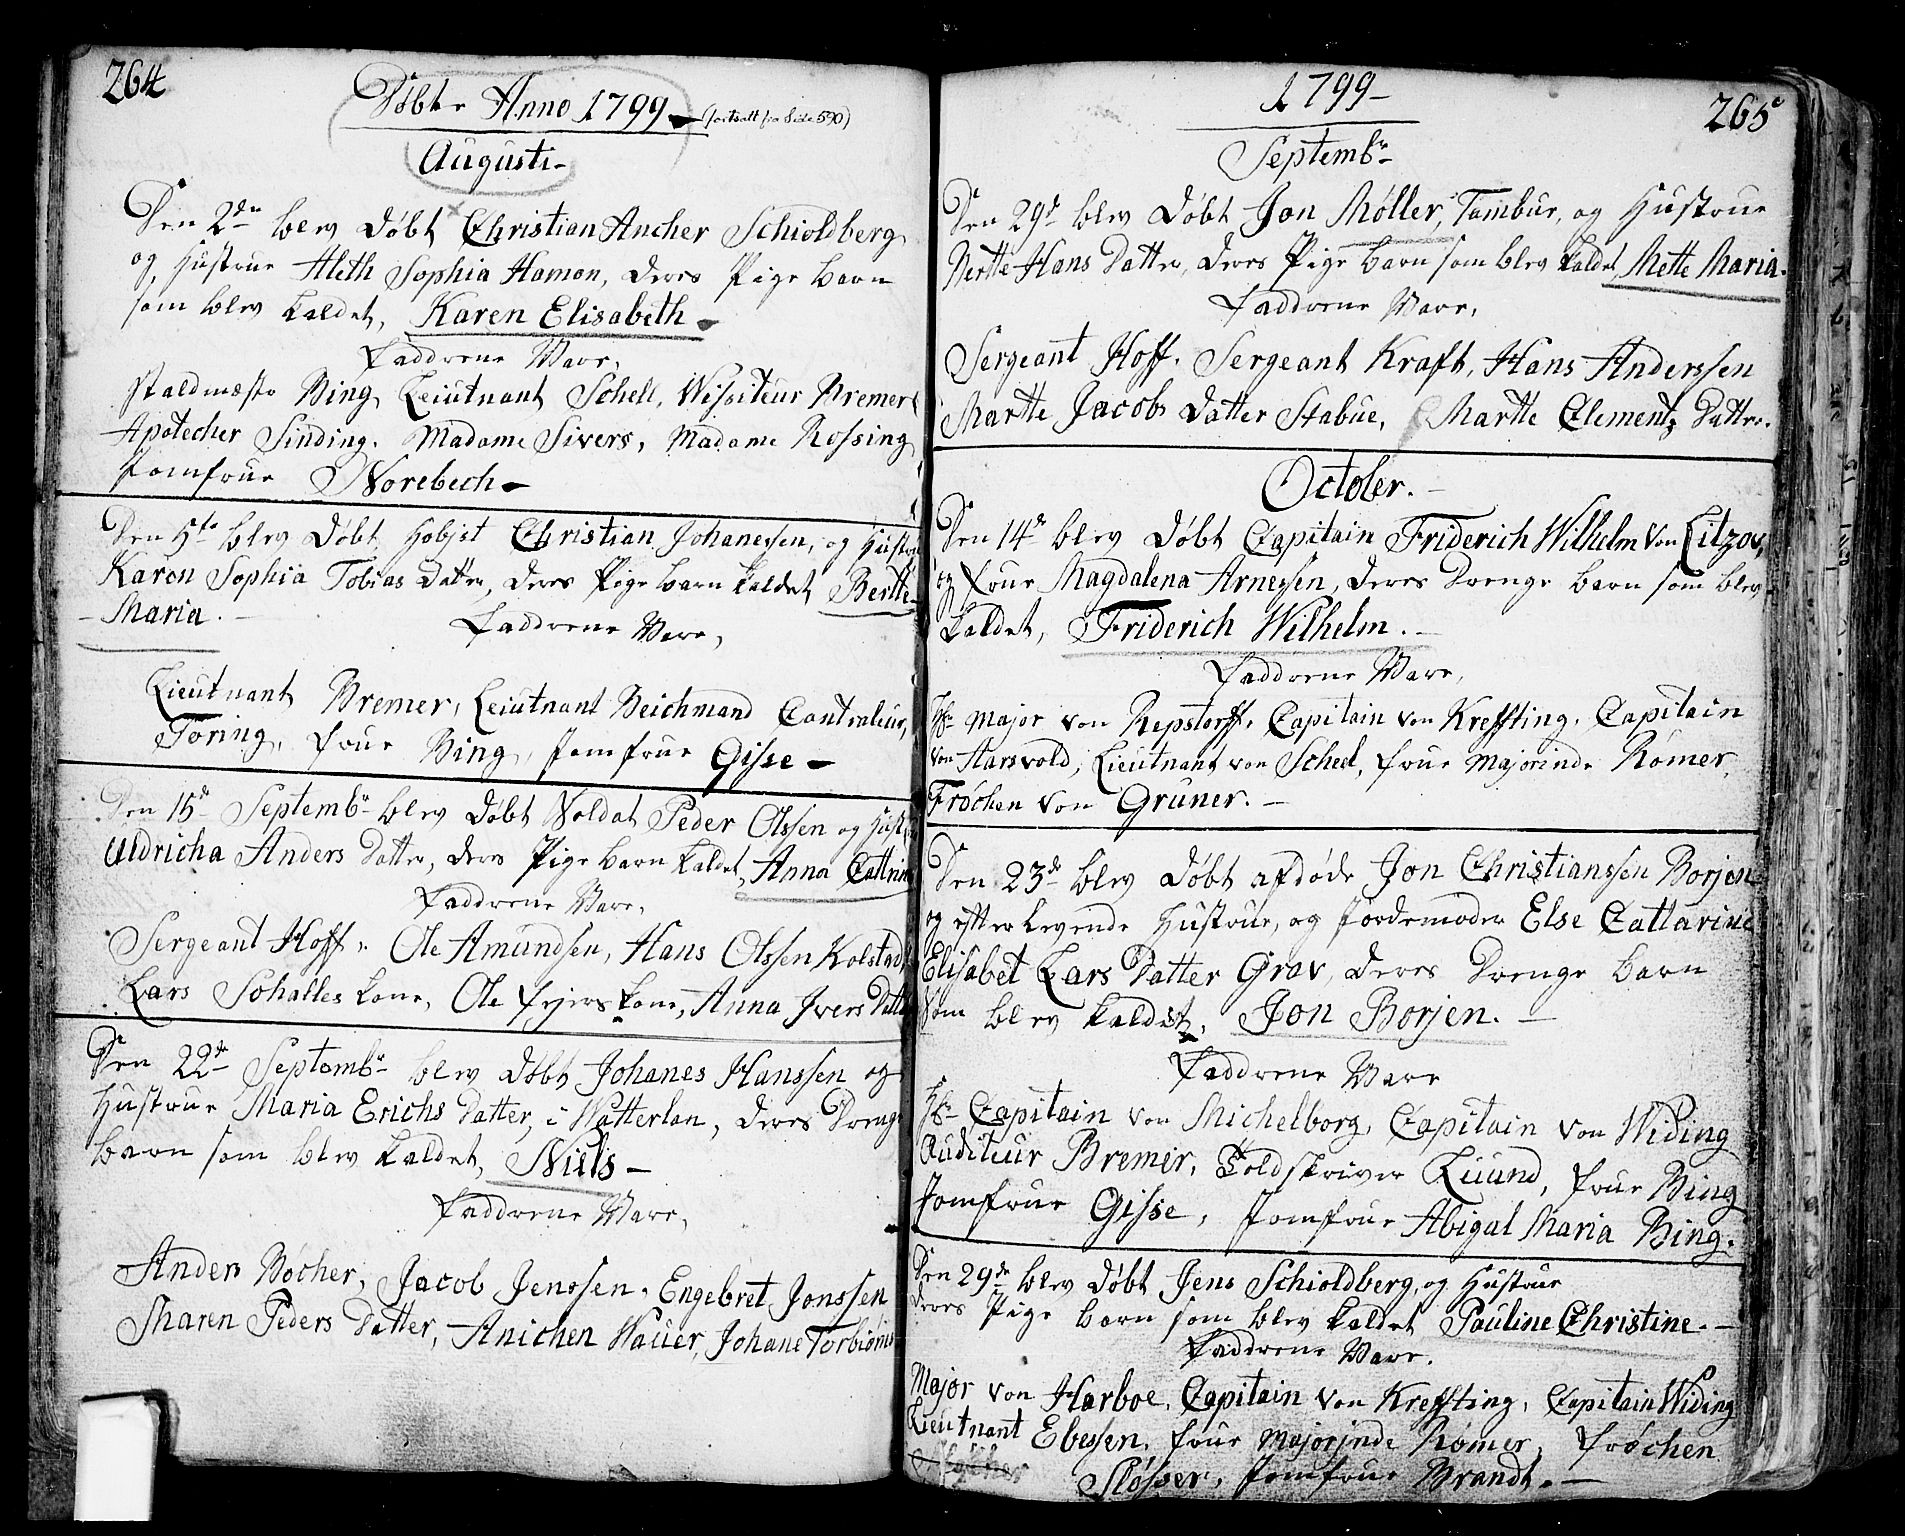 264
Døbte Anno 1799 – (fortsatt fra Side 590)
Augusti –
Den 2den blev Døbt Christian Ancher Schioldberg
og Hustrue Aleth Sophia Hamon, deres Pige barn
som blev kaldet, Karen Elisabeth –
Faddrene Vare,
Staldmester Bing, Leiutnant Schell, Wissiteur Bremer,
Apotecher Sinding. Madame Sivers, Madame Rossing
Jomfrue Norebech –
Den 5te blev Døbt Hobist Christian Johanessen, og Hustrue
Karen Sophia Tobias Datter, deres Pige barn kaldet Berthe
– Maria. –
Faddrene Vare,
Lieutnant Bremer, Leiutnant Beichmand Contraleur,
Toring, frue Bing, Jomfrue Gisse –
Den 15d Septembr blev Døbt Soldat Peder Olssen og Hust
Uldricha Anders Datter, deres Pige barn kaldet, Anna Cattrin
Faddrene Vare,
Sergeant Hoff. Ole Amundsen, Hans Olssen Kolstad,
Lars Schalles kone, Ole Ejers kone, Anna Ivers Datt
Den 22de Septembr blev døbt Johanes Hanssen og
Hustrue Maria Erichs Datter, i Watterlan, deres Drenge
barn som blev kaldet, Niels –
Faddrene Vare,
Anders Bøcher, Jacob Jenssen, Engebret Jonssen
Maren Peders Datter, Anichen Wauer, Johane Torbiørns
1799 –
265
Septembr
Den 29d blev Døbt Jon Møller, Tambur, og Hustrue
Berthe Hans Datter, deres Pige barn som blev kaldet Mette Maria.
Faddrene Vare,
Sergeant Hoff. Sergeant Kraft, Hans Anderssen
Marthe Jacobs Datter Stabue, Marthe Clementz Datter.
October. –
Den 14de blev Døbt Capitain Friderich Wilhelm Von Litzov,
og frue Magdalena Arnessen, deres Drenge barn som blev
kaldet, Friderich Wilhelm. –
Faddrene Vare,
Hr Major von Repstorff, Capitain von Kreffting, Capitain
von Harsvold, Lieutnant von Scheel, frue Majorinde Rømer,
Frøchen von Gruner. –
Den 23de blev Døbt afdøde Jon Christianssen Borjen
og efterlevende Hustrue, og Jordemoder Else Cattarine
Elisabet Lars Datter Grav, deres Drenge barn
som blev kaldet, Jon Borjen. –
Faddrene Vare
Hr Capitain von Michelborg, Capitain von Widing
Auditeur Bremer, Toldskriver Luund, frue Bing
Jomfrue Gisse, Jomfrue Abigal Maria Bing.
Den 29de blev Døbt Jens Schioldberg, og Hustrue
deres Pige barn som blev kaldet Pauline Christine. –
Faddrene Vare.
Major von Harboe, Capitain von Kreffting, Capitain Widing
Lieutnant Ebessen, frue Majorjnde Rømer, frøchen
Sløsser, Jomfrue Brandt. –